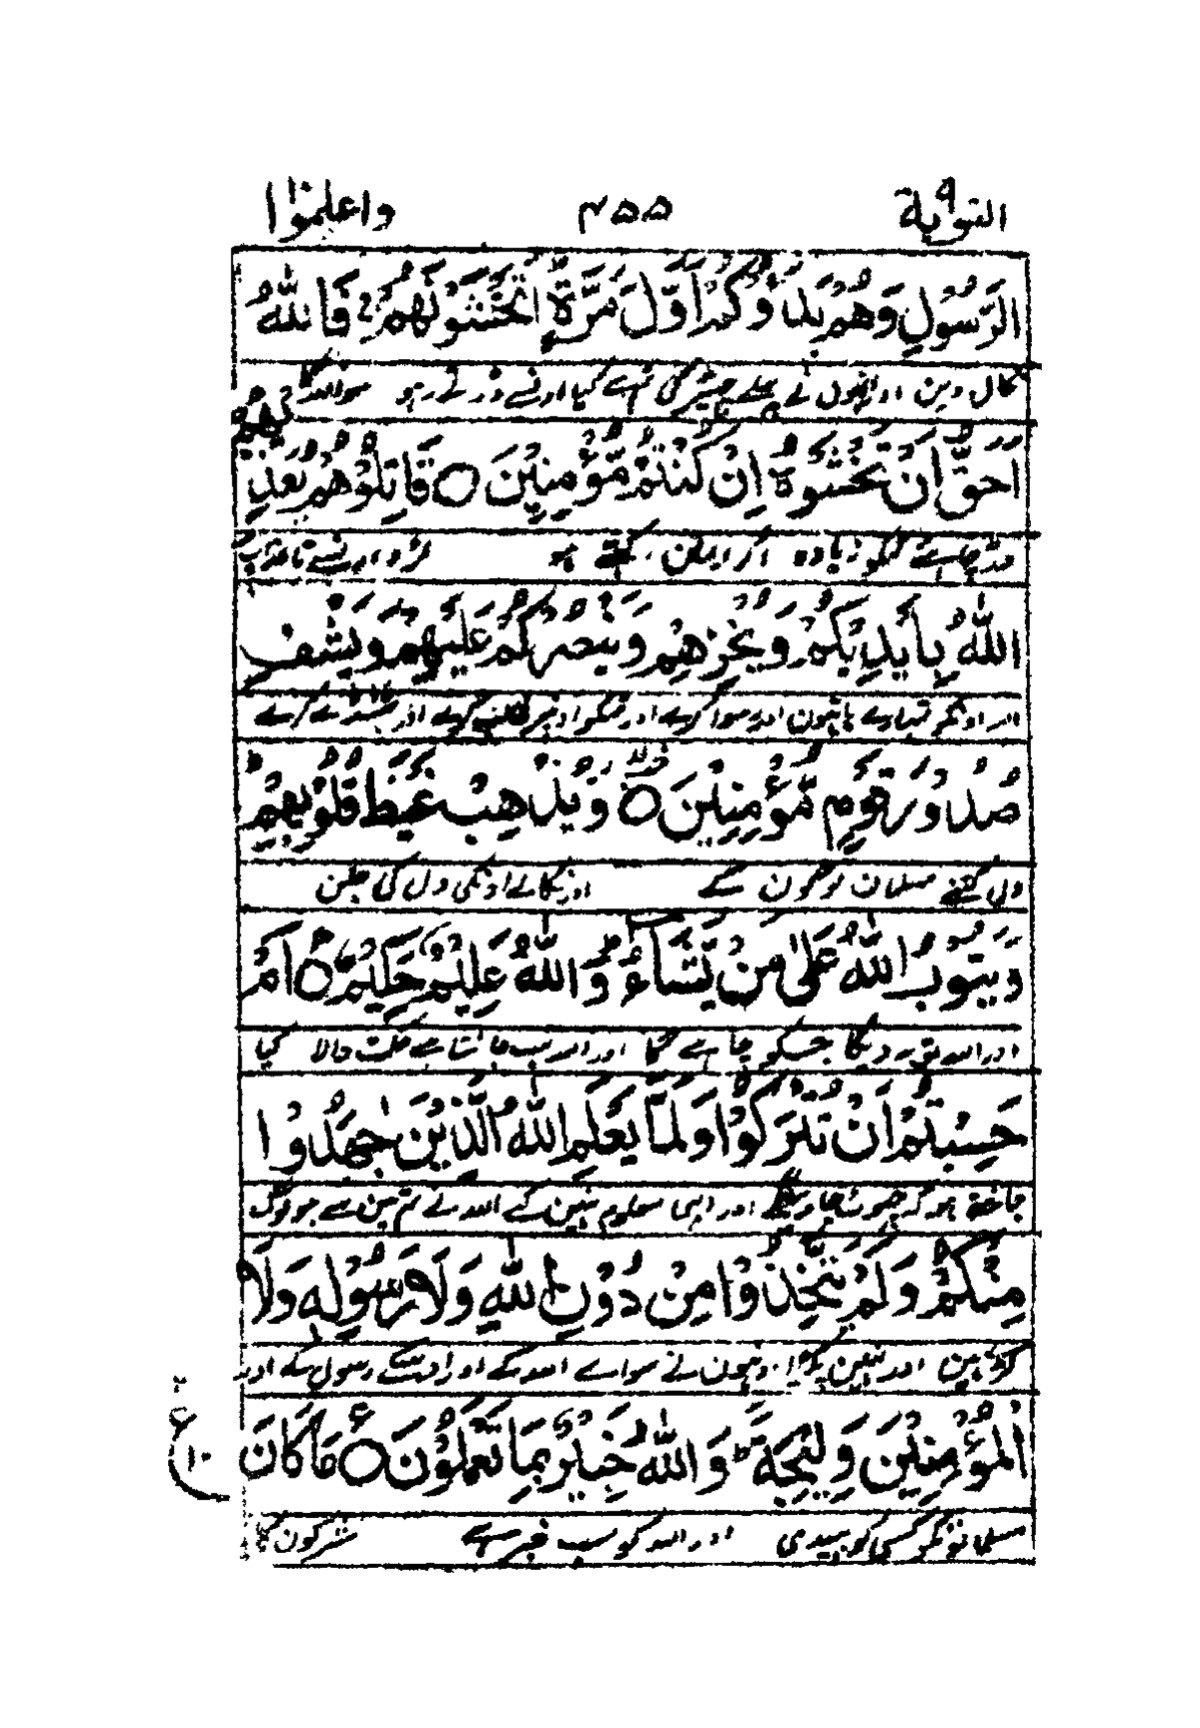 التوبة ٩ ٢٥٥ واعلموا
الرَّسُوْلِ وَهُمْ بَدَءُوْكُمْ اَوَّلَ مَرَّةٍ اَتَخْشَوْنَهُمْ فَاللّٰهُ
نکال دین اور انہوں نے پہلے چھیڑ کی تم سے کیا اونسے ڈرتے ہو سو اللہ کا
اَحَقُّ اَنْ تَخْشَوْهُ اِنْ كُنْتُمْ مُّؤْمِنِيْنَ ○ قَاتِلُوْهُمْ يُعَذِّبْهُمُ
ڈر چاہئے تمکو زیادہ اگر ایمان رکھتے ہو لڑو اونسے تا عذاب
اللّٰهُ بِاَيْدِيْكُمْ وَيُخْزِهِمْ وَيَنْصُرْكُمْ عَلَيْهِمْ وَيَشْفِ
تمہارے ہاتھون اور رسوا کرے اور تمکو اونپر
صُدُوْرَ قَوْمٍ مُّؤْمِنِيْنَ ○ وَيُذْهِبْ غَيْظَ قُلُوْبِهِمْ
دل کتنے مسلمان لوگون کے اور نکالے اونکی دل کی جلن
وَيَتُوْبُ اللّٰهُ عَلٰى مَنْ يَّشَآءُ وَاللّٰهُ عَلِيْمٌ حَكِيْمٌ ○ اَمْ
اور اللہ توبہ دیگا جسکو چاہے گا اور اللہ سب جانتا ہے حکمت والا کیا
حَسِبْتُمْ اَنْ تُتْرَكُوْا وَلَمَّا يَعْلَمِ اللّٰهُ الَّذِيْنَ جٰهَدُوْا
جانتے ہو کہ چھوٹ جاؤگے اور ابھی معلوم نہین کے اللہ نے تم مین سے جو لوگ
مِنْكُمْ وَلَمْ يَتَّخِذُوْا مِنْ دُوْنِ اللّٰهِ وَلَا رَسُوْلِهٖ وَلَا
لڑے ہین اور نہین پکڑا اونہون نے سوائے اللہ کے اور اوسکے رسول کے اور
الْمُؤْمِنِيْنَ وَلِيْجَةً وَاللّٰهُ خَبِيْرٌۢ بِمَا تَعْمَلُوْنَ ○ مَا كَانَ
ع
١٠
مسلمانونکے کسی کو بھیدی اور اللہ کو سب خبر ہے مشرکون کا